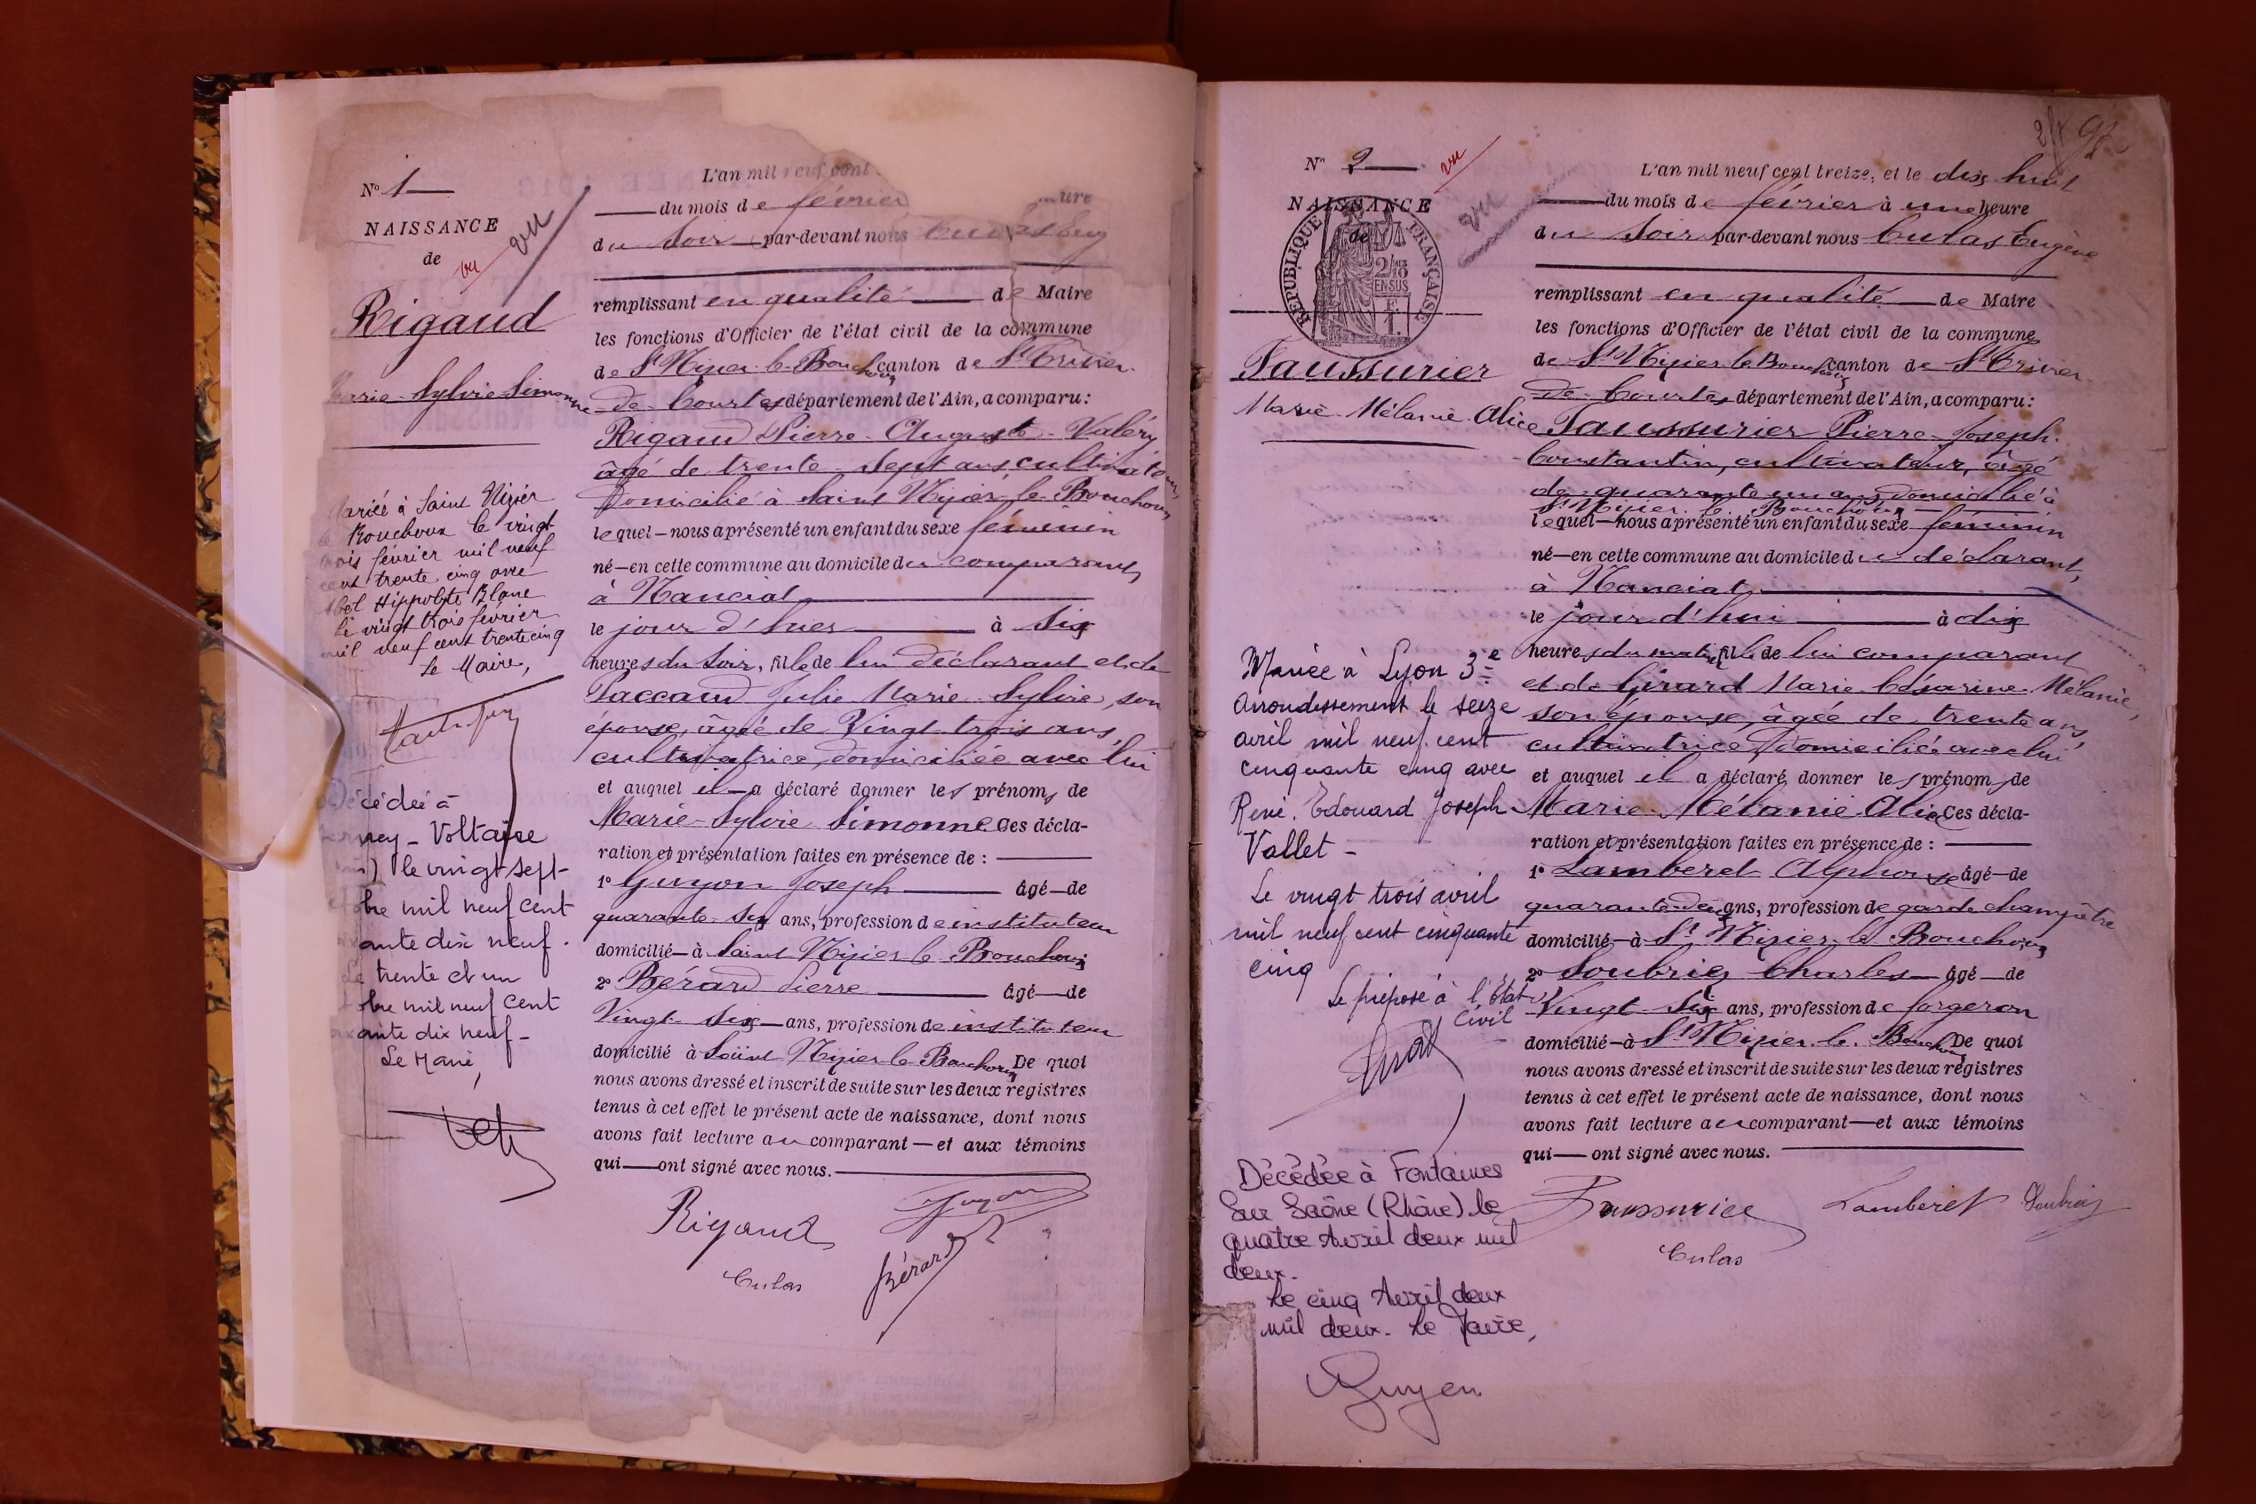 N° 1
NAISSANCE
de
vu
vu
Rigaud
Marie Sylvie Simonne
Mariée à Saint Nizier
le Bouchoux le vingt
trois février mil neuf
cent trente cinq avec
Abel Hippolyte Blanc
le vingt trois février
mil neuf cent trente cinq
Le Maire,
Décédée à
Ferney-Voltaire
le vingt sept
mil neuf cent
ante dix neuf.
Le trente et un
obre mil neuf cent
ante dix neuf-
Le Maire,
L'an mil neuf cent
du mois de février
ure
du soir par-devant nous
remplissant en qualité de Maire
les fonctions d'Officier de l'état civil de la commune
de St Nizier le Bouchoux canton de St Trivier
de Courtes département de l'Ain, a comparu:
Rigaud Pierre Auguste Valéry
âgé de trente sept ans cultivateur,
domicilié à Saint Nizier le Bouchoux
lequel nous a présenté un enfant du sexe féminin
né en cette commune au domicile du comparant,
à Nanciat
le jour d'hier à six
heures du soir, fille de lui déclarant et de
Paccaud Julie Marie Sylvie, son
épouse, âgée de Vingt trois ans,
cultivatrice, domiciliée avec lui
et auquel il a déclaré donner les prénoms de
Marie-Sylvie Simonne. Ces décla-
ration et présentation faites en présence de :
1° Guyon Joseph âgé de
quarante six ans, profession de instituteur
domicilié à Saint Nizier le Bouchoux
2° Bérard Pierre âgé de
Vingt six ans, profession de instituteur
domicilié à Saint Nizier le Bouchoux De quoi
nous avons dressé et inscrit de suite sur les deux registres
tenus à cet effet le présent acte de naissance, dont nous
avons fait lecture au comparant et aux témoins
qui ont signé avec nous.
Rigaud
Guyon
Culas
Bérard
97
N° 2
vu
NAISSANCE
de
vu
RÉPUBLIQUE FRANÇAISE
Faussurier
Marie Mélanie Alice
Mariée à Lyon 3e
Arrondissement le seize
avril mil neuf cent
cinquante cinq avec
René Edouard Joseph
Vallet -
Le vingt trois avril
mil neuf cent cinquante
cinq
Le préposé à l'État
Civil
Décédée à Fontaines
Sur Saône (Rhône) le
quatre Avril deux mil
deux.
Le cinq Avril deux
mil deux. Le Maire,
L'an mil neuf cent treize, et le dix huit
du mois de février à une heure
du soir par-devant nous Culas Eugène
remplissant en qualité de Maire
les fonctions d'Officier de l'état civil de la commune
de St Nizier le Bouchoux canton de St Trivier
de Courtes département de l'Ain, a comparu:
Faussurier Pierre Joseph
Constantin, cultivateur, âgé
de quarante un ans, domicilié à
St Nizier le Bouchoux
lequel nous a présenté un enfant du sexe féminin
né en cette commune au domicile du déclarant,
à Nanciat
le jour d'hui à dix
heures du matin fille de lui comparant
et de Girard Marie Césarine Mélanie,
son épouse, âgée de trente ans,
cultivatrice, domiciliée avec lui
et auquel il a déclaré donner les prénoms de
Marie Mélanie Alice Ces décla-
ration et présentation faites en présence de :
1° Lamberet Alphonse âgé de
quarante deux ans, profession de garde champêtre
domicilié à St Nizier le Bouchoux
2° Soubriez Charles âgé de
Vingt six ans, profession de forgeron
domicilié à St Nizier le Bouchoux De quoi
nous avons dressé et inscrit de suite sur les deux registres
tenus à cet effet le présent acte de naissance, dont nous
avons fait lecture au comparant et aux témoins
qui ont signé avec nous.
Faussurier
Lamberet
Culas